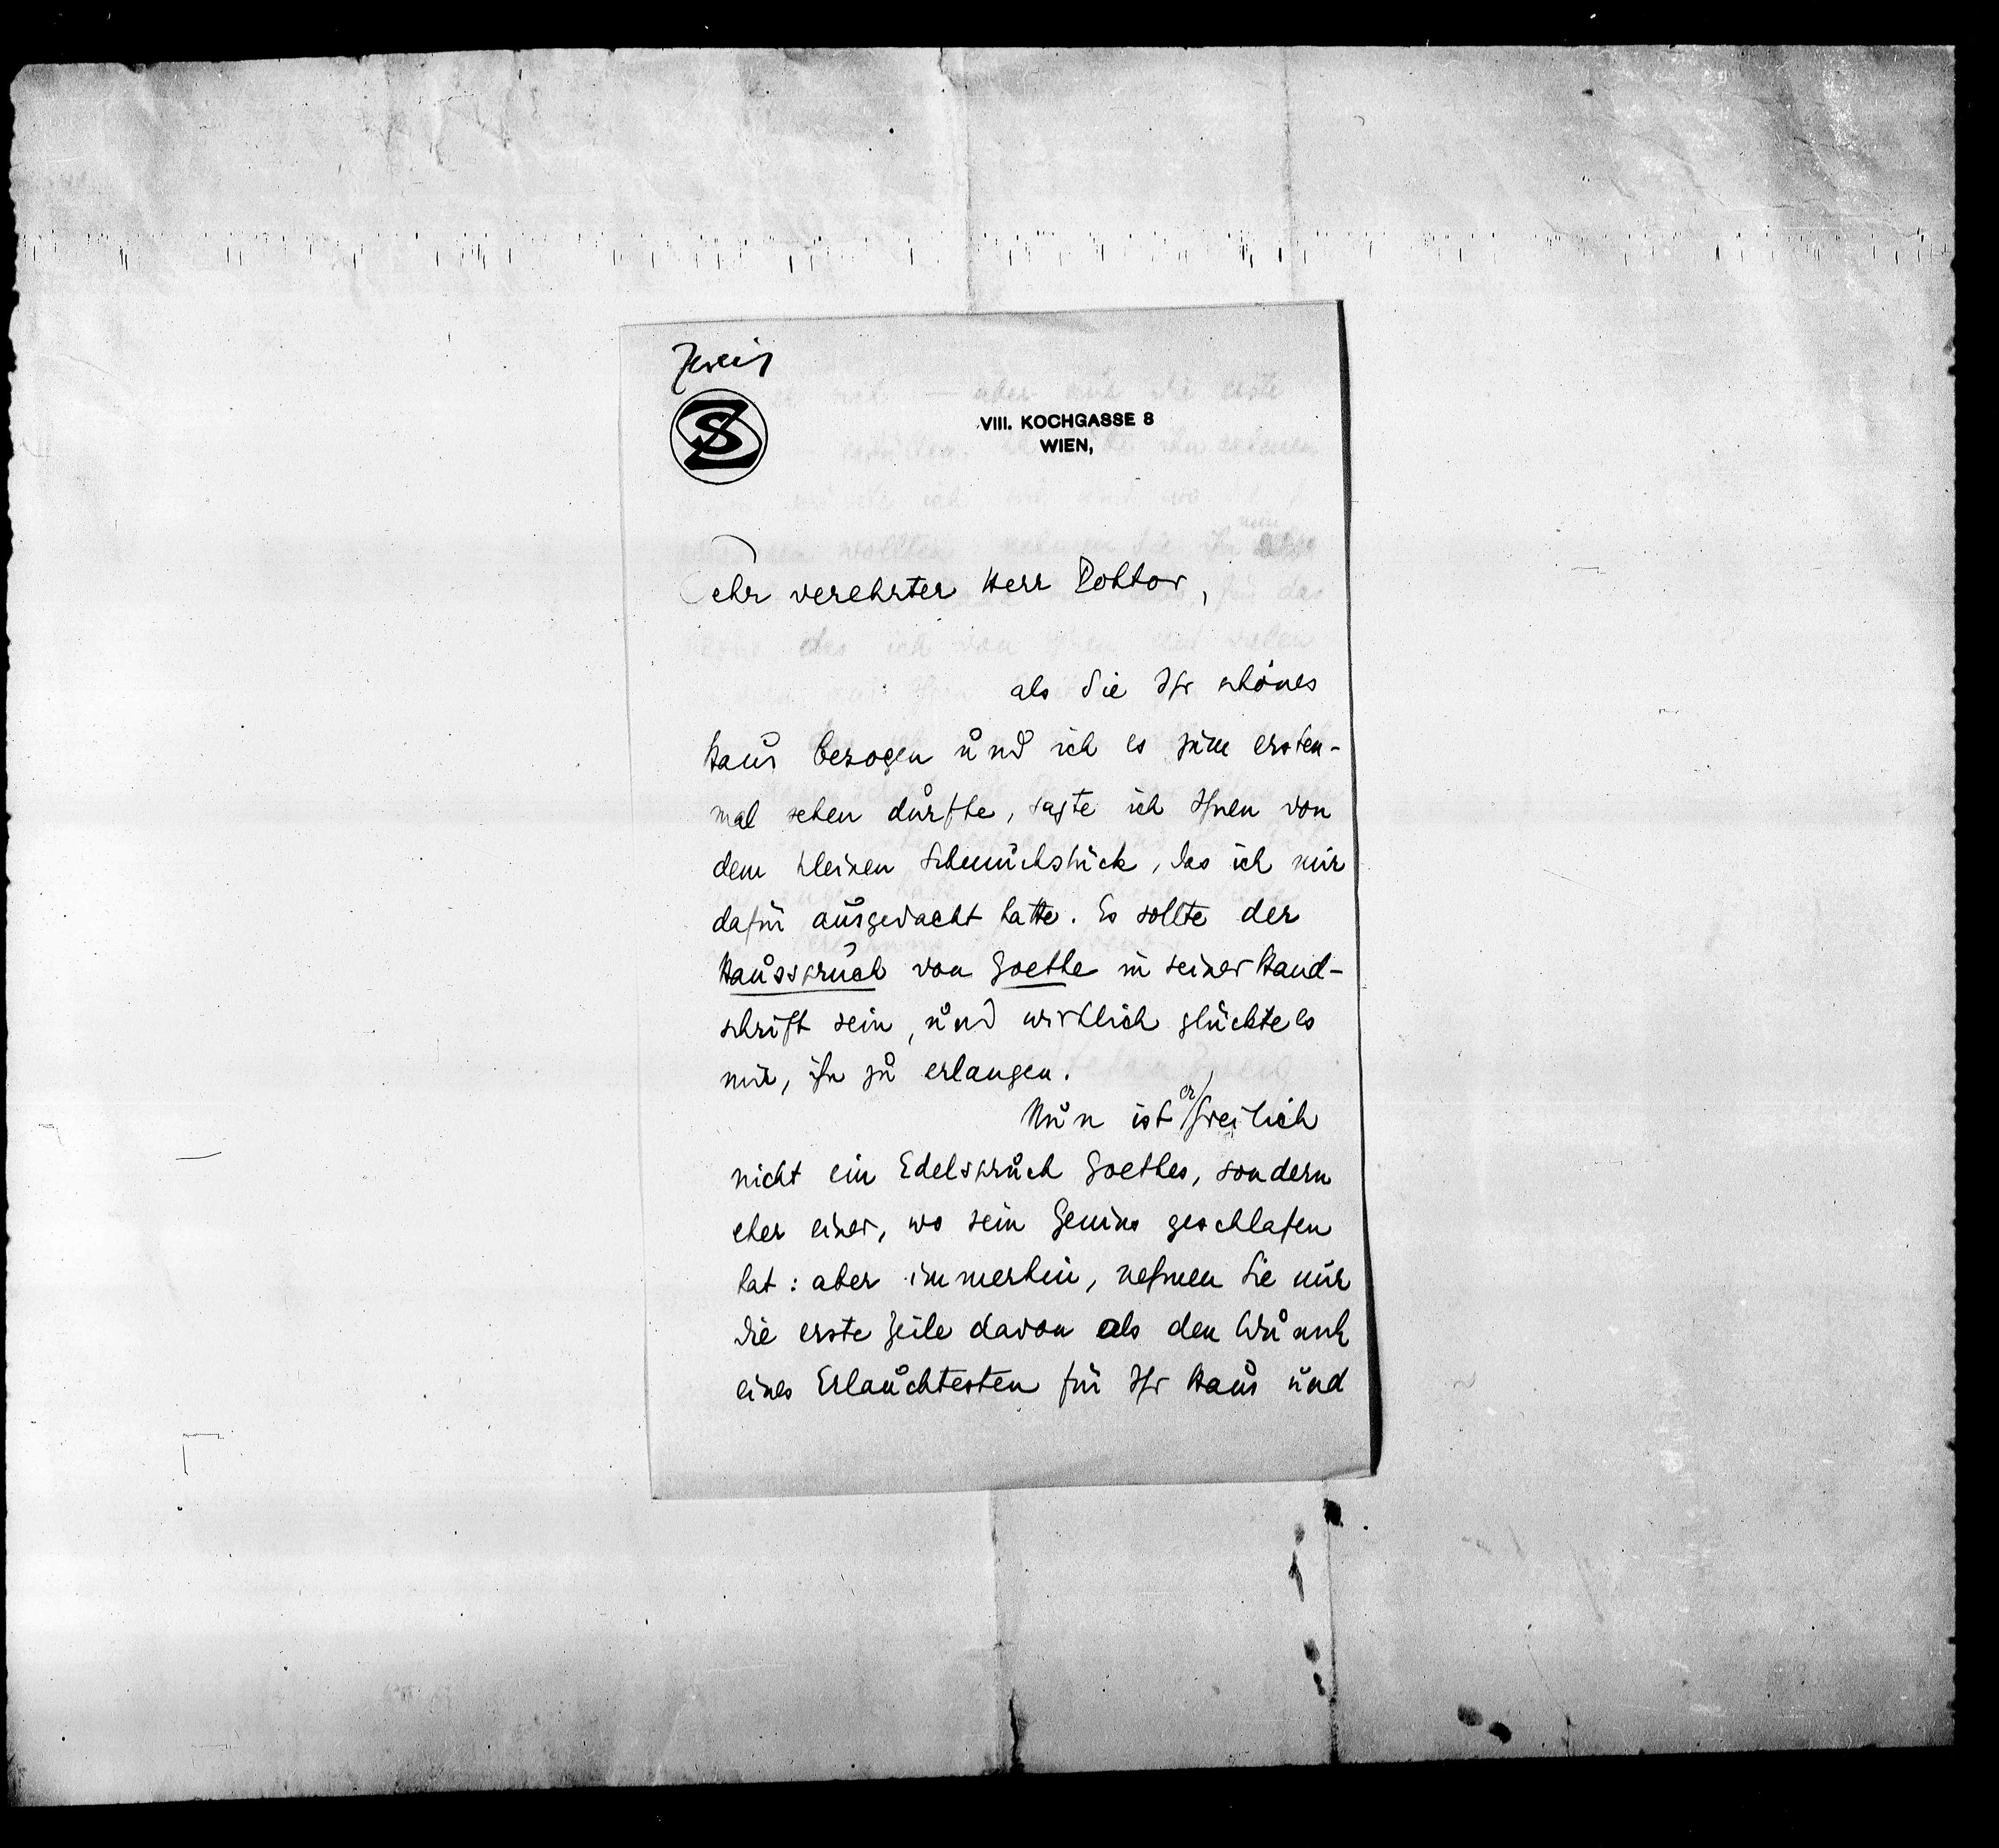 Zweig
SZ
VIII. KOCHGASSE 8
WIEN,
Sehr verehrter Herr Doktor,
als Sie Ihr schönes
Haus bezogen und ich es zum ersten-
mal sehen durfte, sagte ich Ihnen von
dem kleinen Schmuckstück, das ich mir
dafür ausgedacht hatte. Es sollte der
Hausspruch von Goethe in seiner Hand-
schrift sein, und wirklich glückte es
mir, ihn zu erlangen.
Nun ist er freilich
nicht ein Edelspruch Goethes, sondern
eher einer, wo sein Genius geschlafen
hat: aber immerhin, nehmen Sie nur
die erste Zeile davon als den Wunsch
eines Erlauchtesten für Ihr Haus und